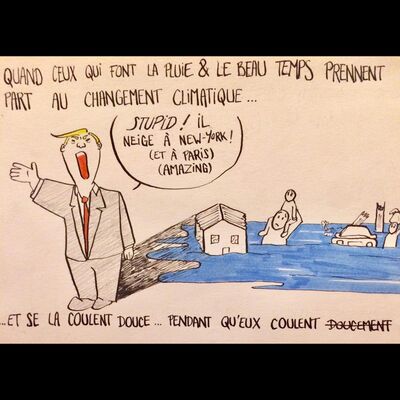 QUAND CEUX QUI FONT LA PLUIE & LE BEAU TEMPS PRENNENT
PART AU CHANGEMENT CLIMATIQUE...
STUPID! IL
NEIGE À NEW-YORK!
(ET À PARIS)
(AMAZING)
...ET SE LA COULENT DOUCE... PENDANT QU'EUX COULENT DOUCEMENT